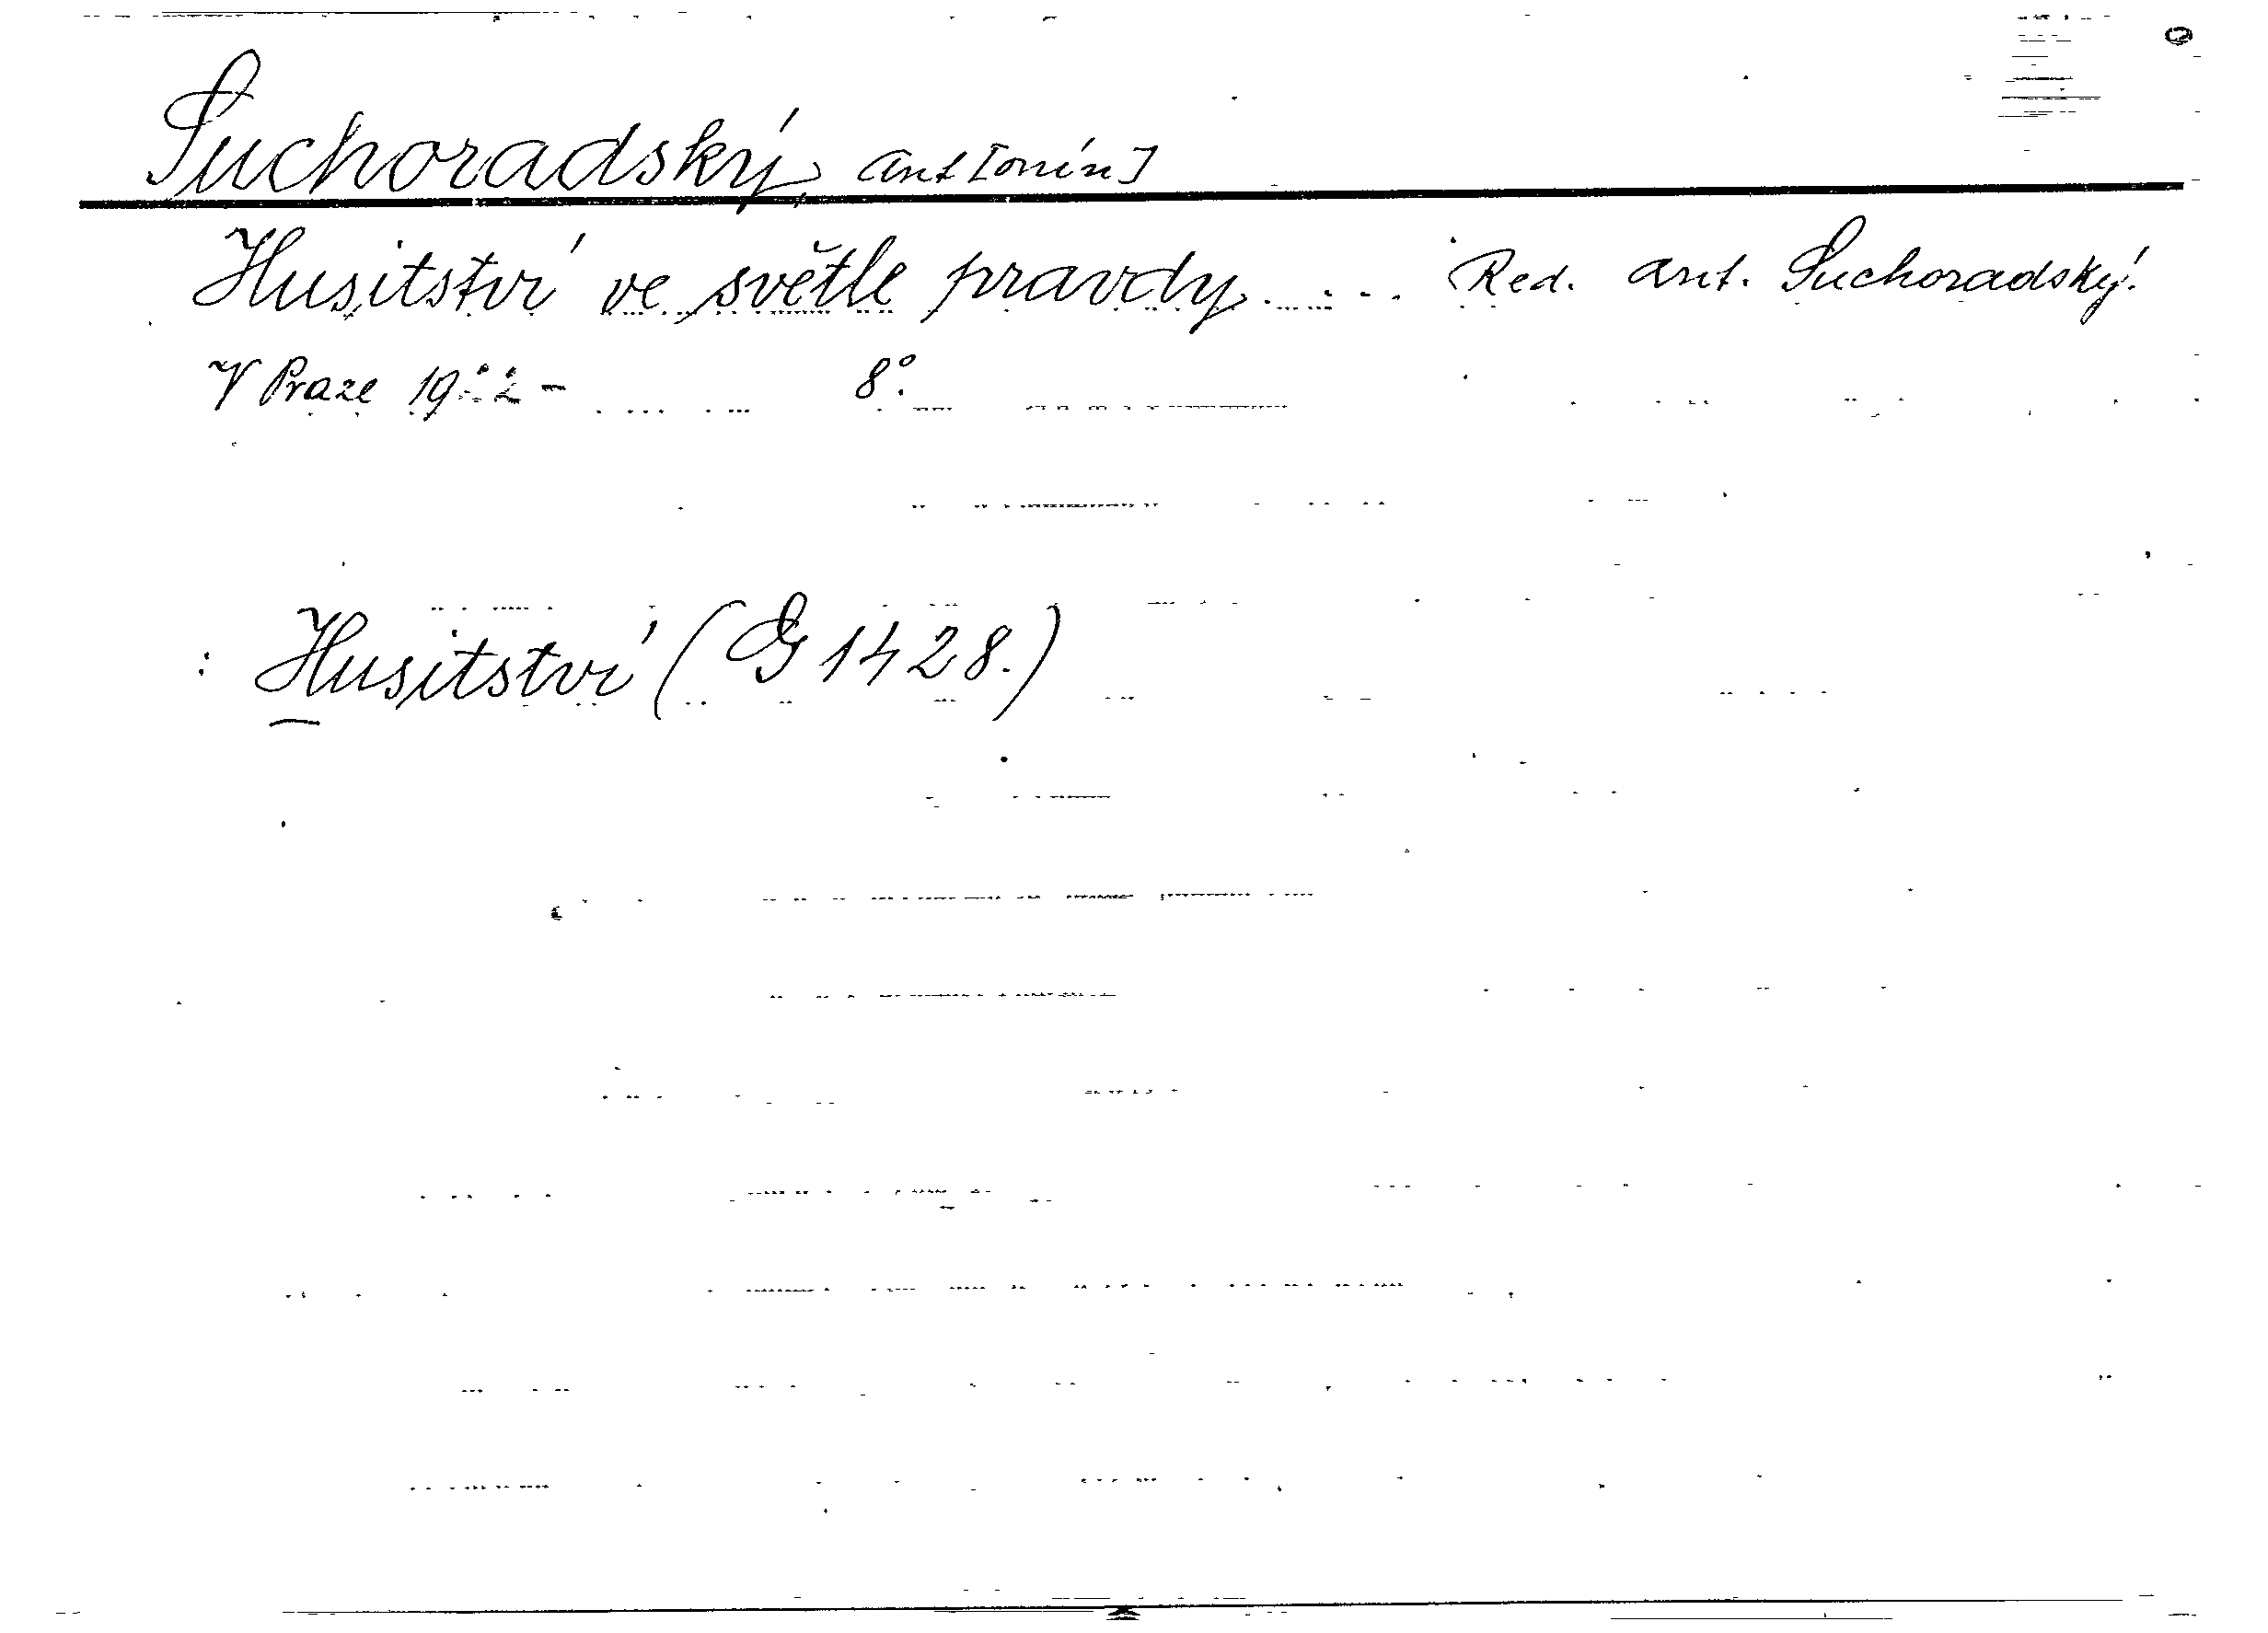 Suchoradský, Ant[onín]
Husitství ve světle pravdy..... Red. Ant. Suchoradský.
V Praze 8°.
: Husitství (G 1428.)